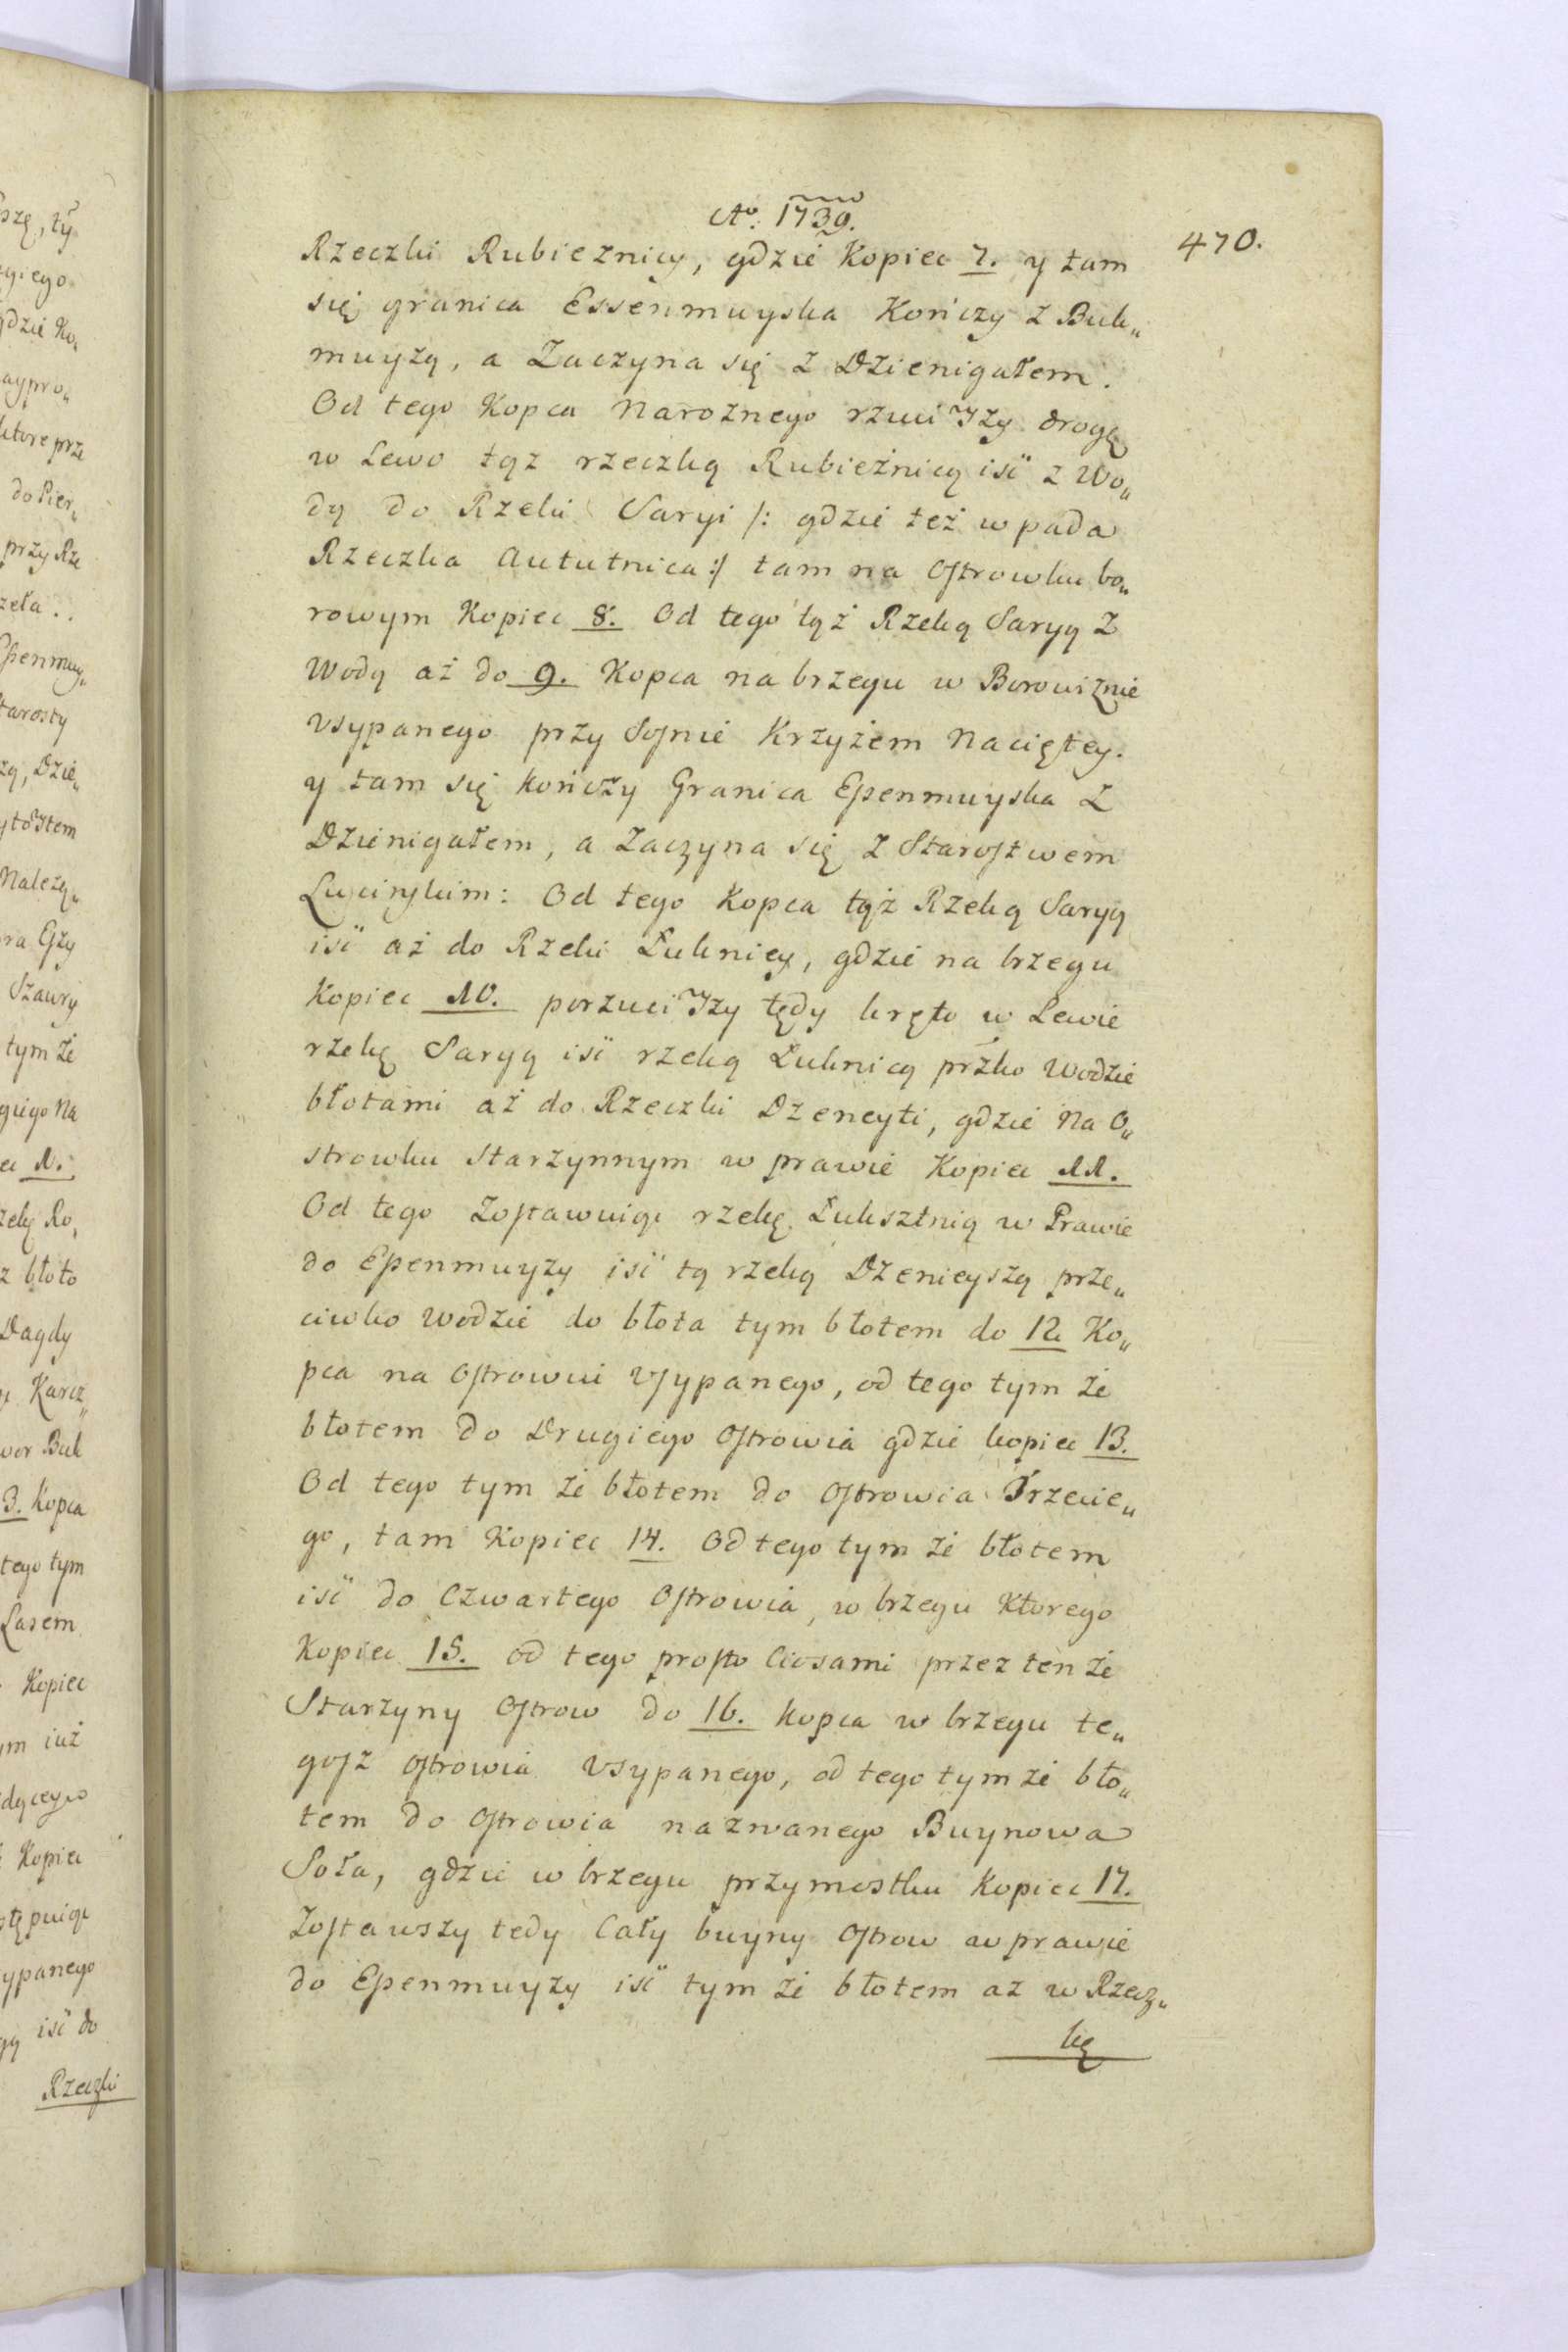 Ao. 1730.
470.
Rzeczki Rubieznicy, gdzie Kopiec 7. y tam
się granica Essenmuyska Kończy z Buk„
muyzą, a Zaczyna się z Dzienigałem.
Od tego Kopca Narożnego rzuci Jzy drogę
w Lewo tąż rzeczką Rubieżnicą iść z Wo„
dą do Rzeki Saryi /: gdzie też wpada
Rzeczka Aututnica :/ tam na Ostrowku bo„
rowym Kopiec 8. Od tego tąż Rzeką Saryą z
Wodą aż do 9. Kopca na brzegu w Borowiznie
vsypanego przy Sosnie Krzyżem Naciętey.
y tam się kończy Granica Essenmuyska z
Dzienigałem, a Zaczyna się z Starostwem
Lucinskim: Od tego Kopca tąż Rzeką Saryą
iść aż do Rzeki Łuknicy, gdzie na brzegu
Kopiec 10. porzuci Jzy tędy kręto w Lewie
rzekę Saryą iść rzeką Łuknicą przko Wodzie
błotami aż do Rzeczki Dzeneyti, gdzie Na O„
strowku Starzynnym w prawie Kopiec 11.
Od tego Zostawuiąc rzekę Łuksztnią w Prawie
do Essenmuyzy iść tą rzeką Dzenieyszą prze„
ciwko Wodzie do błota tym błotem do 12. Ko„
pca na Ostrowiu Vsypanego, od tego tym że
błotem do Drugiego Ostrowia gdzie kopiec 13.
Od tego tym że błotem do Ostrowia Trzecie„
go, tam Kopiec 14. Od tego tym że błotem
iść do Czwartego Ostrowia, w brzegu Ktorego
Kopiec 15. od tego prosto Ciosami przez ten że
Starzyny Ostrow do 16. kopca w brzegu te„
gosz ostrowia Vsypanego, od tego tym że bło„
tem do Ostrowia nazwanego Buynowa
Soła, gdzie w brzegu przymostku Kopiec 17.
Zostawszy tedy Cały buyny Ostrow w prawie
do Essenmuyzy iść tym że błotem aż w Rzecz„
kę